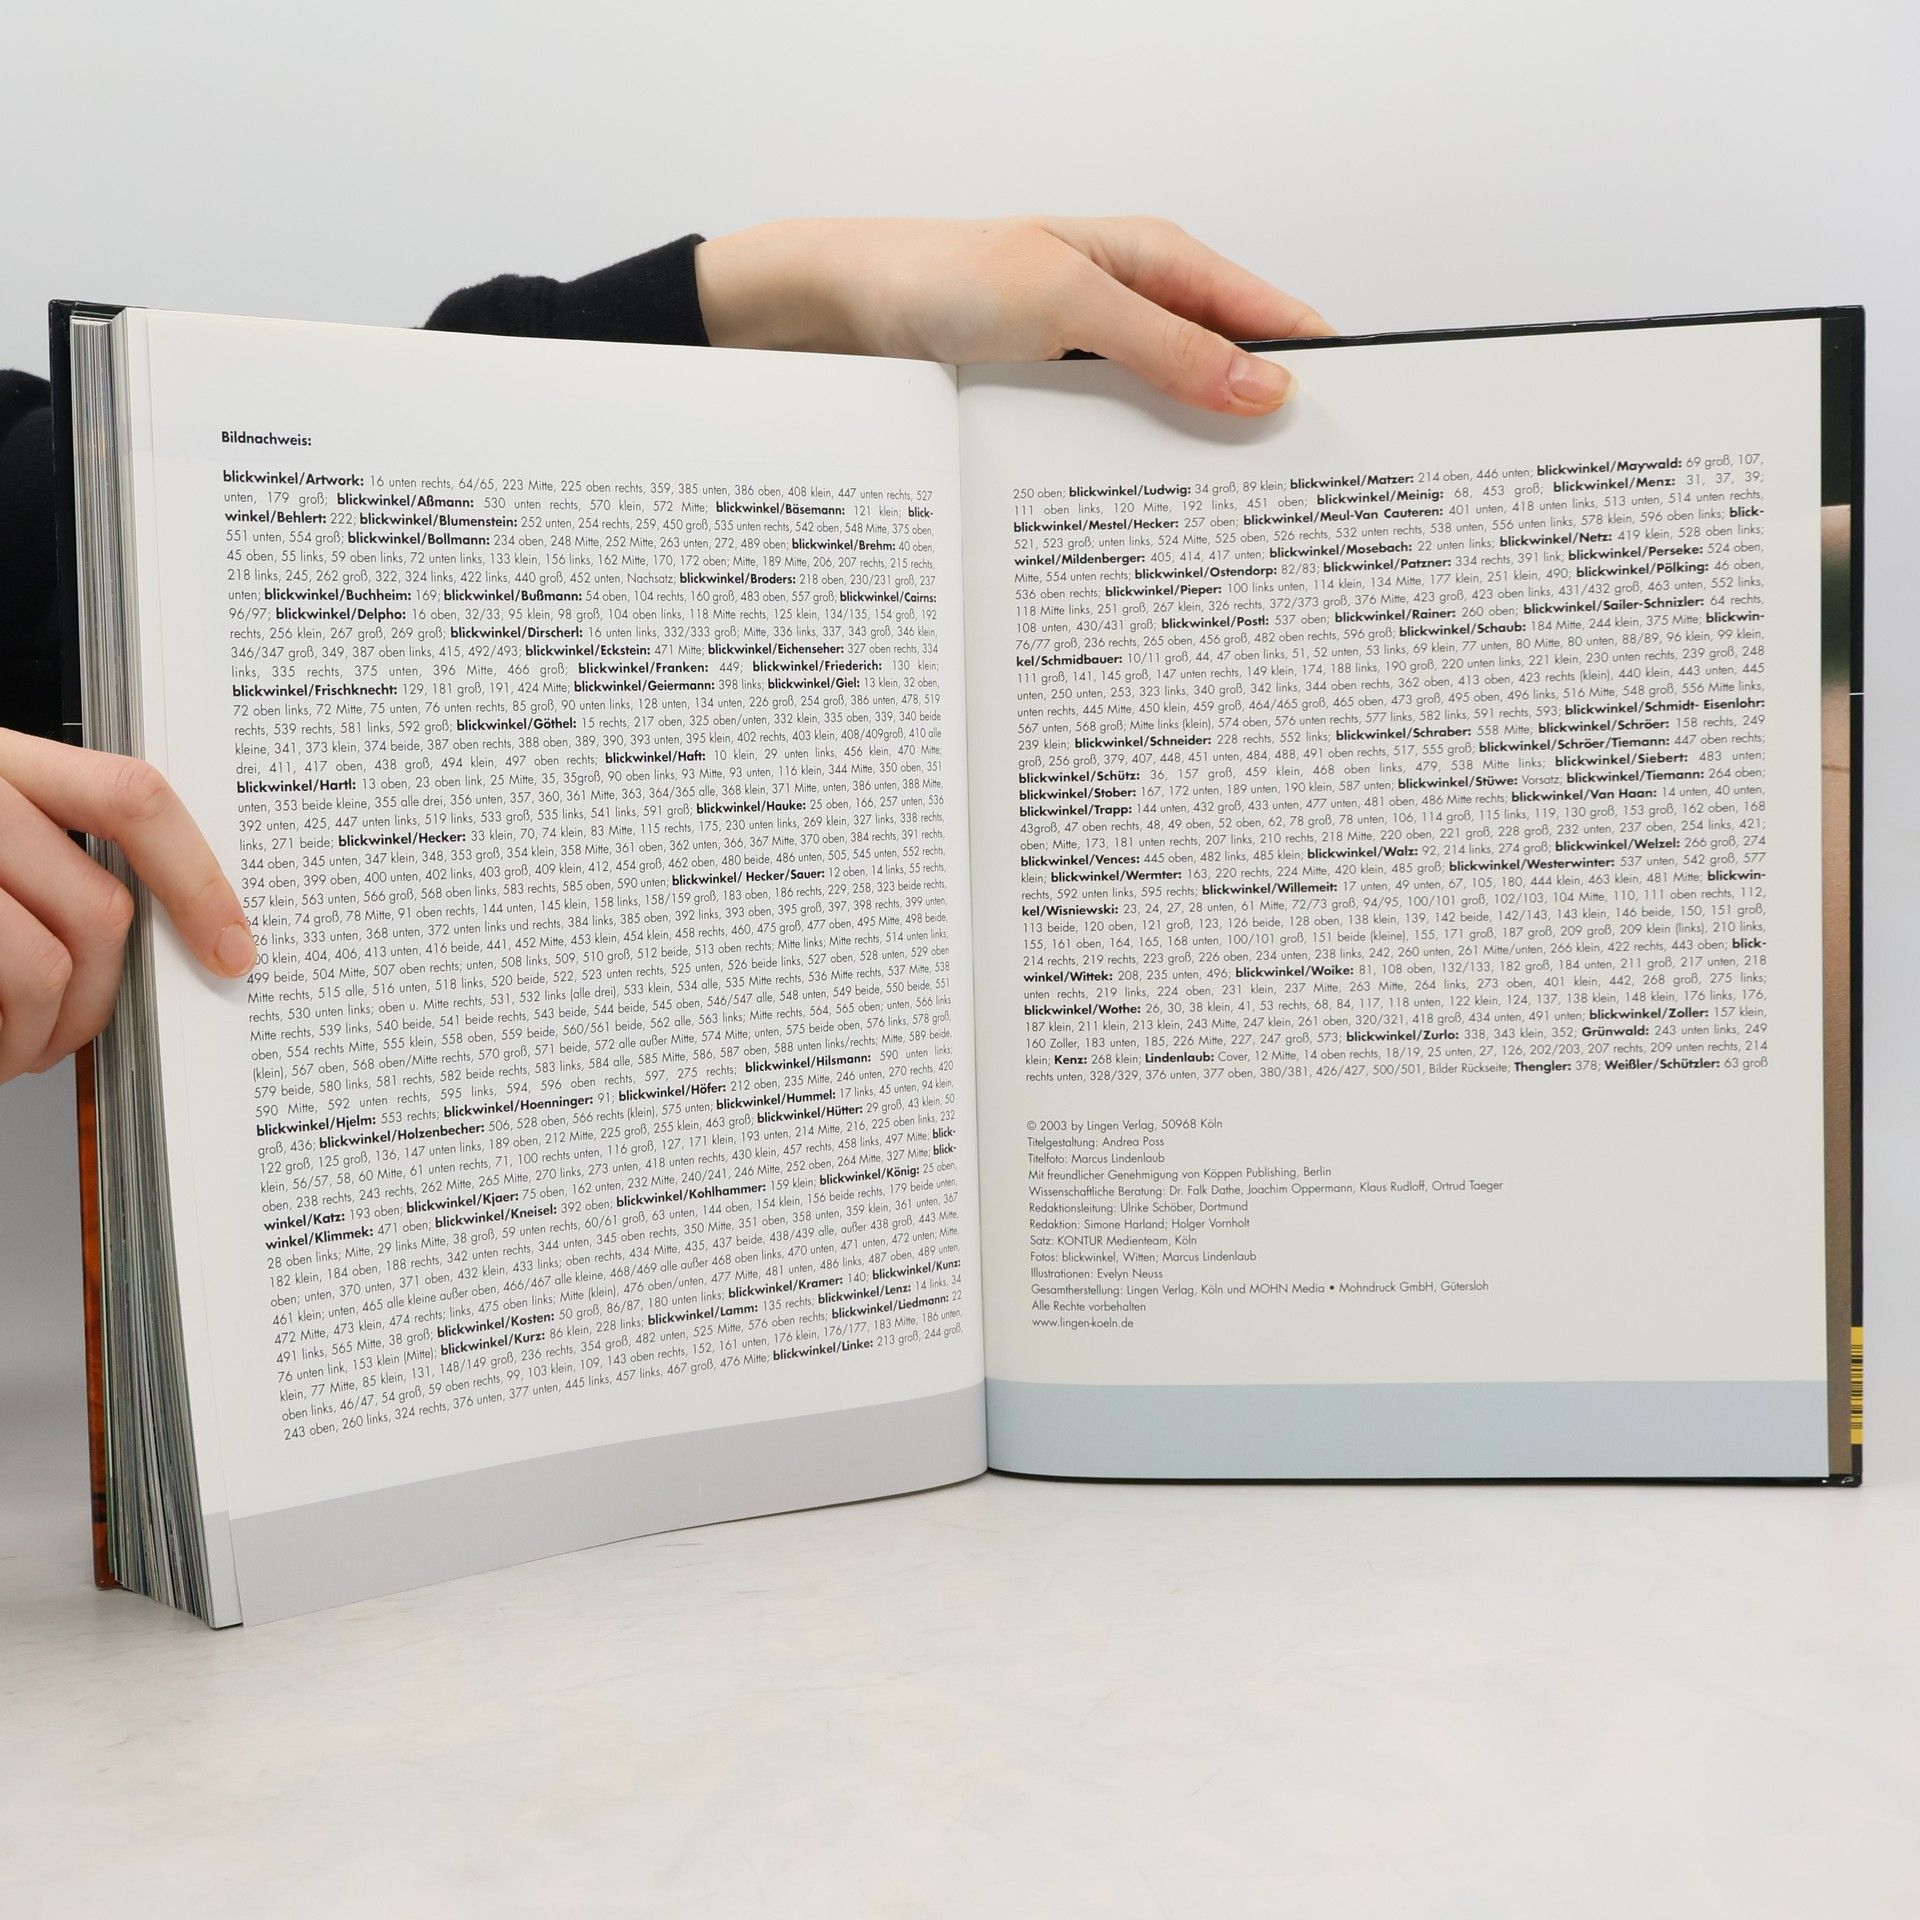 Bildnachweis:
blickwinkel/Artwork: 16 unten rechts, 64/65, 223 Mitte, 225 oben rechts, 359, 385 unten, 386 oben, 408 klein, 447 unten rechts, 527
unten, 179 groß; blickwinkel/Aßmann: 530 unten rechts, 570 klein, 572 Mitte; blickwinkel/Bäsemann: 121 klein; blick-
winkel/Behlert: 222; blickwinkel/Blumenstein: 252 unten, 254 rechts, 259, 450 groß, 535 unten rechts, 542 oben, 548 Mitte, 375 oben,
551 unten, 554 groß; blickwinkel/Bollmann: 234 oben, 248 Mitte, 252 Mitte, 263 unten, 272, 489 oben; blickwinkel/Brehm: 40 oben,
45 oben, 55 links, 59 oben links, 72 unten links, 133 klein, 156 links, 162 Mitte, 170, 172 oben; Mitte, 189 Mitte, 206, 207 rechts, 215 rechts,
218 links, 245, 262 groß, 322, 324 links, 422 links, 440 groß, 452 unten, Nachsatz; blickwinkel/Broders: 218 oben, 230/231 groß, 237
unten; blickwinkel/Buchheim: 169; blickwinkel/Bußmann: 54 oben, 104 rechts, 160 groß, 483 oben, 557 groß; blickwinkel/Cairns:
96/97; blickwinkel/Delpho: 16 oben, 32/33, 95 klein, 98 groß, 104 oben links, 118 Mitte rechts, 125 klein, 134/135, 154 groß, 192
rechts, 256 klein, 267 groß, 269 groß; blickwinkel/Dirscherl: 16 unten links, 332/333 groß; Mitte, 336 links, 337, 343 groß, 346 klein,
346/347 groß, 349, 387 oben links, 415, 492/493; blickwinkel/Eckstein: 471 Mitte; blickwinkel/Eichenseher: 327 oben rechts, 334
links, 335 rechts, 375 unten, 396 Mitte, 466 groß; blickwinkel/Franken: 449; blickwinkel/Friederich: 130 klein;
blickwinkel/Frischknecht: 129, 181 groß, 191, 424 Mitte; blickwinkel/Geiermann: 398 links; blickwinkel/Giel: 13 klein, 32 oben,
72 oben links, 72 Mitte, 75 unten, 76 unten rechts, 85 groß, 90 unten links, 128 unten, 134 unten, 226 groß, 254 groß, 386 unten, 478, 519
rechts, 539 rechts, 581 links, 592 groß; blickwinkel/Göthel: 15 rechts, 217 oben, 325 oben/unten, 332 klein, 335 oben, 339, 340 beide
kleine, 341, 373 klein, 374 beide, 387 oben rechts, 388 oben, 389, 390, 393 unten, 395 klein, 402 rechts, 403 klein, 408/409groß, 410 alle
drei, 411, 417 oben, 438 groß, 494 klein, 497 oben rechts; blickwinkel/Haft: 10 klein, 29 unten links, 456 klein, 470 Mitte;
blickwinkel/Hartl: 13 oben, 23 oben link, 25 Mitte, 35, 35groß, 90 oben links, 93 Mitte, 93 unten, 116 klein, 344 Mitte, 350 oben, 351
unten, 353 beide kleine, 355 alle drei, 356 unten, 357, 360, 361 Mitte, 363, 364/365 alle, 368 klein, 371 Mitte, unten, 386 unten, 388 Mitte,
392 unten, 425, 447 unten links, 519 links, 533 groß, 535 links, 541 links, 591 groß; blickwinkel/Hauke: 25 oben, 166, 257 unten, 536
links, 271 beide; blickwinkel/Hecker: 33 klein, 70, 74 klein, 83 Mitte, 115 rechts, 175, 230 unten links, 269 klein, 327 links, 338 rechts,
344 oben, 345 unten, 347 klein, 348, 353 groß, 354 klein, 358 Mitte, 361 oben, 362 unten, 366, 367 Mitte, 370 oben, 384 rechts, 391 rechts,
394 oben, 399 oben, 400 unten, 402 links, 403 groß, 409 klein, 412, 454 groß, 462 oben, 480 beide, 486 unten, 505, 545 unten, 552 rechts,
557 klein, 563 unten, 566 groß, 568 oben links, 583 rechts, 585 oben, 590 unten; blickwinkel/ Hecker/Sauer: 12 oben, 14 links, 55 rechts,
64 klein, 74 groß, 78 Mitte, 91 oben rechts, 144 unten, 145 klein, 158 links, 158/159 groß, 183 oben, 186 rechts, 229, 258, 323 beide rechts,
26 links, 333 unten, 368 unten, 372 unten links und rechts, 384 links, 385 oben, 392 links, 393 oben, 395 groß, 397, 398 rechts, 399 unten,
00 klein, 404, 406, 413 unten, 416 beide, 441, 452 Mitte, 453 klein, 454 klein, 458 rechts, 460, 475 groß, 477 oben, 495 Mitte, 498 beide,
499 beide, 504 Mitte, 507 oben rechts; unten, 508 links, 509, 510 groß, 512 beide, 513 oben rechts; Mitte links; Mitte rechts, 514 unten links;
Mitte rechts, 515 alle, 516 unten, 518 links, 520 beide, 522, 523 unten rechts, 525 unten, 526 beide links, 527 oben, 528 unten, 529 oben
rechts, 530 unten links; oben u. Mitte rechts, 531, 532 links (alle drei), 533 klein, 534 alle, 535 Mitte rechts, 536 Mitte rechts, 537 Mitte, 538
Mitte rechts, 539 links, 540 beide, 541 beide rechts, 543 beide, 544 beide, 545 oben, 546/547 alle, 548 unten, 549 beide, 550 beide, 551
oben, 554 rechts Mitte, 555 klein, 558 oben, 559 beide, 560/561 beide, 562 alle, 563 links; Mitte rechts, 564, 565 oben; unten, 566 links
(klein), 567 oben, 568 oben/Mitte rechts, 570 groß, 571 beide, 572 alle außer Mitte, 574 Mitte; unten, 575 beide oben, 576 links, 578 groß,
579 beide, 580 links, 581 rechts, 582 beide rechts, 583 links, 584 alle, 585 Mitte, 586, 587 oben, 588 unten links/rechts; Mitte, 589 beide,
590 Mitte, 592 unten rechts, 595 links, 594, 596 oben rechts, 597, 275 rechts; blickwinkel/Hilsmann: 590 unten links;
blickwinkel/Hjelm: 553 rechts; blickwinkel/Hoenninger: 91; blickwinkel/Höfer: 212 oben, 235 Mitte, 246 unten, 270 rechts, 420
groß, 436; blickwinkel/Holzenbecher: 506, 528 oben, 566 rechts (klein), 575 unten; blickwinkel/Hummel: 17 links, 45 unten, 94 klein,
122 groß, 125 groß, 136, 147 unten links, 189 oben, 212 Mitte, 225 groß, 255 klein, 463 groß; blickwinkel/Hütter: 29 groß, 43 klein, 50
klein, 56/57, 58, 60 Mitte, 61 unten rechts, 71, 100 rechts unten, 116 groß, 127, 171 klein, 193 unten, 214 Mitte, 216, 225 oben links, 232
oben, 238 rechts, 243 rechts, 262 Mitte, 265 Mitte, 270 links, 273 unten, 418 unten rechts, 430 klein, 457 rechts, 458 links, 497 Mitte; blick-
winkel/Katz: 193 oben; blickwinkel/Kjaer: 75 oben, 162 unten, 232 Mitte, 240/241, 246 Mitte, 252 oben, 264 Mitte, 327 Mitte; blick-
winkel/Klimmek: 471 oben; blickwinkel/Kneisel: 392 oben; blickwinkel/Kohlhammer: 159 klein; blickwinkel/König: 25 oben,
28 oben links; Mitte, 29 links Mitte, 38 groß, 59 unten rechts, 60/61 groß, 63 unten, 144 oben, 154 klein, 156 beide rechts, 179 beide unten,
182 klein, 184 oben, 188 rechts, 342 unten rechts, 344 unten, 345 oben rechts, 350 Mitte, 351 oben, 358 unten, 359 klein, 361 unten, 367
oben; unten, 370 unten, 371 oben, 432 klein, 433 links; oben rechts, 434 Mitte, 435, 437 beide, 438/439 alle, außer 438 groß, 443 Mitte,
461 klein; unten, 465 alle kleine außer oben, 466/467 alle kleine, 468/469 alle außer 468 oben links, 470 unten, 471 unten, 472 unten; Mitte,
472 Mitte, 473 klein, 474 rechts; links, 475 oben links; Mitte (klein), 476 oben/unten, 477 Mitte, 481 unten, 486 links, 487 oben, 489 unten,
491 links, 565 Mitte, 38 groß; blickwinkel/Kosten: 50 groß, 86/87, 180 unten links; blickwinkel/Kramer: 140; blickwinkel/Kunz:
76 unten link, 153 klein (Mitte); blickwinkel/Kurz: 86 klein, 228 links; blickwinkel/Lamm: 135 rechts; blickwinkel/Lenz: 14 links, 34
klein, 77 Mitte, 85 klein, 131, 148/149 groß, 236 rechts, 354 groß, 482 unten, 525 Mitte, 576 oben rechts; blickwinkel/Liedmann: 22
oben links, 46/47, 54 groß, 59 oben rechts, 99, 103 klein, 109, 143 oben rechts, 152, 161 unten, 176 klein, 176/177, 183 Mitte, 186 unten,
243 oben, 260 links, 324 rechts, 376 unten, 377 unten, 445 links, 457 links, 467 groß, 476 Mitte; blickwinkel/Linke: 213 groß, 244 groß,
250 oben; blickwinkel/Ludwig: 34 groß, 89 klein; blickwinkel/Matzer: 214 oben, 446 unten; blickwinkel/Maywald: 69 groß, 107,
111 oben links, 120 Mitte, 192 links, 451 oben; blickwinkel/Meinig: 68, 453 groß; blickwinkel/Menz: 31, 37, 39;
blickwinkel/Mestel/Hecker: 257 oben; blickwinkel/Meul-Van Cauteren: 401 unten, 418 unten links, 513 unten, 514 unten rechts,
521, 523 groß; unten links, 524 Mitte, 525 oben, 526 rechts, 532 unten rechts, 538 unten, 556 unten links, 578 klein, 596 oben links; blick-
winkel/Mildenberger: 405, 414, 417 unten; blickwinkel/Mosebach: 22 unten links; blickwinkel/Netz: 419 klein, 528 oben links;
Mitte, 554 unten rechts; blickwinkel/Ostendorp: 82/83; blickwinkel/Patzner: 334 rechts, 391 link; blickwinkel/Perseke: 524 oben,
536 oben rechts; blickwinkel/Pieper: 100 links unten, 114 klein, 134 Mitte, 177 klein, 251 klein, 490; blickwinkel/Pölking: 46 oben,
118 Mitte links, 251 groß, 267 klein, 326 rechts, 372/373 groß, 376 Mitte, 423 groß, 423 oben links, 431/432 groß, 463 unten, 552 links,
108 unten, 430/431 groß; blickwinkel/Postl: 537 oben; blickwinkel/Rainer: 260 oben; blickwinkel/Sailer-Schnizler: 64 rechts,
76/77 groß, 236 rechts, 265 oben, 456 groß, 482 oben rechts, 596 groß; blickwinkel/Schaub: 184 Mitte, 244 klein, 375 Mitte; blickwin-
kel/Schmidbauer: 10/11 groß, 44, 47 oben links, 51, 52 unten, 53 links, 69 klein, 77 unten, 80 Mitte, 80 unten, 88/89, 96 klein, 99 klein,
111 groß, 141, 145 groß, 147 unten rechts, 149 klein, 174, 188 links, 190 groß, 220 unten links, 221 klein, 230 unten rechts, 239 groß, 248
unten, 250 unten, 253, 323 links, 340 groß, 342 links, 344 oben rechts, 362 oben, 413 oben, 423 rechts (klein), 440 klein, 443 unten, 445
unten rechts, 445 Mitte, 450 klein, 459 groß, 464/465 groß, 465 oben, 473 groß, 495 oben, 496 links, 516 Mitte, 548 groß, 556 Mitte links,
567 unten, 568 groß; Mitte links (klein), 574 oben, 576 unten rechts, 577 links, 582 links, 591 rechts, 593; blickwinkel/Schmidt- Eisenlohr:
239 klein; blickwinkel/Schneider: 228 rechts, 552 links; blickwinkel/Schraber: 558 Mitte; blickwinkel/Schröer: 158 rechts, 249
groß, 256 groß, 379, 407, 448, 451 unten, 484, 488, 491 oben rechts, 517, 555 groß; blickwinkel/Schröer/Tiemann: 447 oben rechts;
blickwinkel/Schütz: 36, 157 groß, 459 klein, 468 oben links, 479, 538 Mitte links; blickwinkel/Siebert: 483 unten;
blickwinkel/Stober: 167, 172 unten, 189 unten, 190 klein, 587 unten; blickwinkel/Stüwe: Vorsatz; blickwinkel/Tiemann: 264 oben;
blickwinkel/Trapp: 144 unten, 432 groß, 433 unten, 477 unten, 481 oben, 486 Mitte rechts; blickwinkel/Van Haan: 14 unten, 40 unten,
43groß, 47 oben rechts, 48, 49 oben, 52 oben, 62, 78 groß, 78 unten, 106, 114 groß, 115 links, 119, 130 groß, 153 groß, 162 oben, 168
oben; Mitte, 173, 181 unten rechts, 207 links, 210 rechts, 218 Mitte, 220 oben, 221 groß, 228 groß, 232 unten, 237 oben, 254 links, 421;
blickwinkel/Vences: 445 oben, 482 links, 485 klein; blickwinkel/Walz: 92, 214 links, 274 groß; blickwinkel/Welzel: 266 groß, 274
klein; blickwinkel/Wermter: 163, 220 rechts, 224 Mitte, 420 klein, 485 groß; blickwinkel/Westerwinter: 537 unten, 542 groß, 577
rechts, 592 unten links, 595 rechts; blickwinkel/Willemeit: 17 unten, 49 unten, 67, 105, 180, 444 klein, 463 klein, 481 Mitte; blickwin-
kel/Wisniewski: 23, 24, 27, 28 unten, 61 Mitte, 72/73 groß, 94/95, 100/101 groß, 102/103, 104 Mitte, 110, 111 oben rechts, 112,
113 beide, 120 oben, 121 groß, 123, 126 beide, 128 oben, 138 klein, 139, 142 beide, 142/143, 143 klein, 146 beide, 150, 151 groß,
155, 161 oben, 164, 165, 168 unten, 100/101 groß, 151 beide (kleine), 155, 171 groß, 187 groß, 209 groß, 209 klein (links), 210 links,
214 rechts, 219 rechts, 223 groß, 226 oben, 234 unten, 238 links, 242, 260 unten, 261 Mitte/unten, 266 klein, 422 rechts, 443 oben; blick-
winkel/Wittek: 208, 235 unten, 496; blickwinkel/Woike: 81, 108 oben, 132/133, 182 groß, 184 unten, 211 groß, 217 unten, 218
unten rechts, 219 links, 224 oben, 231 klein, 237 Mitte, 263 Mitte, 264 links, 273 oben, 401 klein, 442, 268 groß, 275 links;
blickwinkel/Wothe: 26, 30, 38 klein, 41, 53 rechts, 68, 84, 117, 118 unten, 122 klein, 124, 137, 138 klein, 148 klein, 176 links, 176,
187 klein, 211 klein, 213 klein, 243 Mitte, 247 klein, 261 oben, 320/321, 418 groß, 434 unten, 491 unten; blickwinkel/Zoller: 157 klein,
160 Zoller, 183 unten, 185, 226 Mitte, 227, 247 groß, 573; blickwinkel/Zurlo: 338, 343 klein, 352; Grünwald: 243 unten links, 249
klein; Kenz: 268 klein; Lindenlaub: Cover, 12 Mitte, 14 oben rechts, 18/19, 25 unten, 27, 126, 202/203, 207 rechts, 209 unten rechts, 214
rechts unten, 328/329, 376 unten, 377 oben, 380/381, 426/427, 500/501, Bilder Rückseite; Thengler: 378; Weißler/Schützler: 63 groß
© 2003 by Lingen Verlag, 50968 Köln
Titelgestaltung: Andrea Poss
Titelfoto: Marcus Lindenlaub
Mit freundlicher Genehmigung von Köppen Publishing, Berlin
Wissenschaftliche Beratung: Dr. Falk Dathe, Joachim Oppermann, Klaus Rudloff, Ortrud Taeger
Redaktionsleitung: Ulrike Schöber, Dortmund
Redaktion: Simone Harland; Holger Vornholt
Satz: KONTUR Medienteam, Köln
Fotos: blickwinkel, Witten; Marcus Lindenlaub
Illustrationen: Evelyn Neuss
Gesamtherstellung: Lingen Verlag, Köln und MOHN Media • Mohndruck GmbH, Gütersloh
Alle Rechte vorbehalten
www.lingen-koeln.de